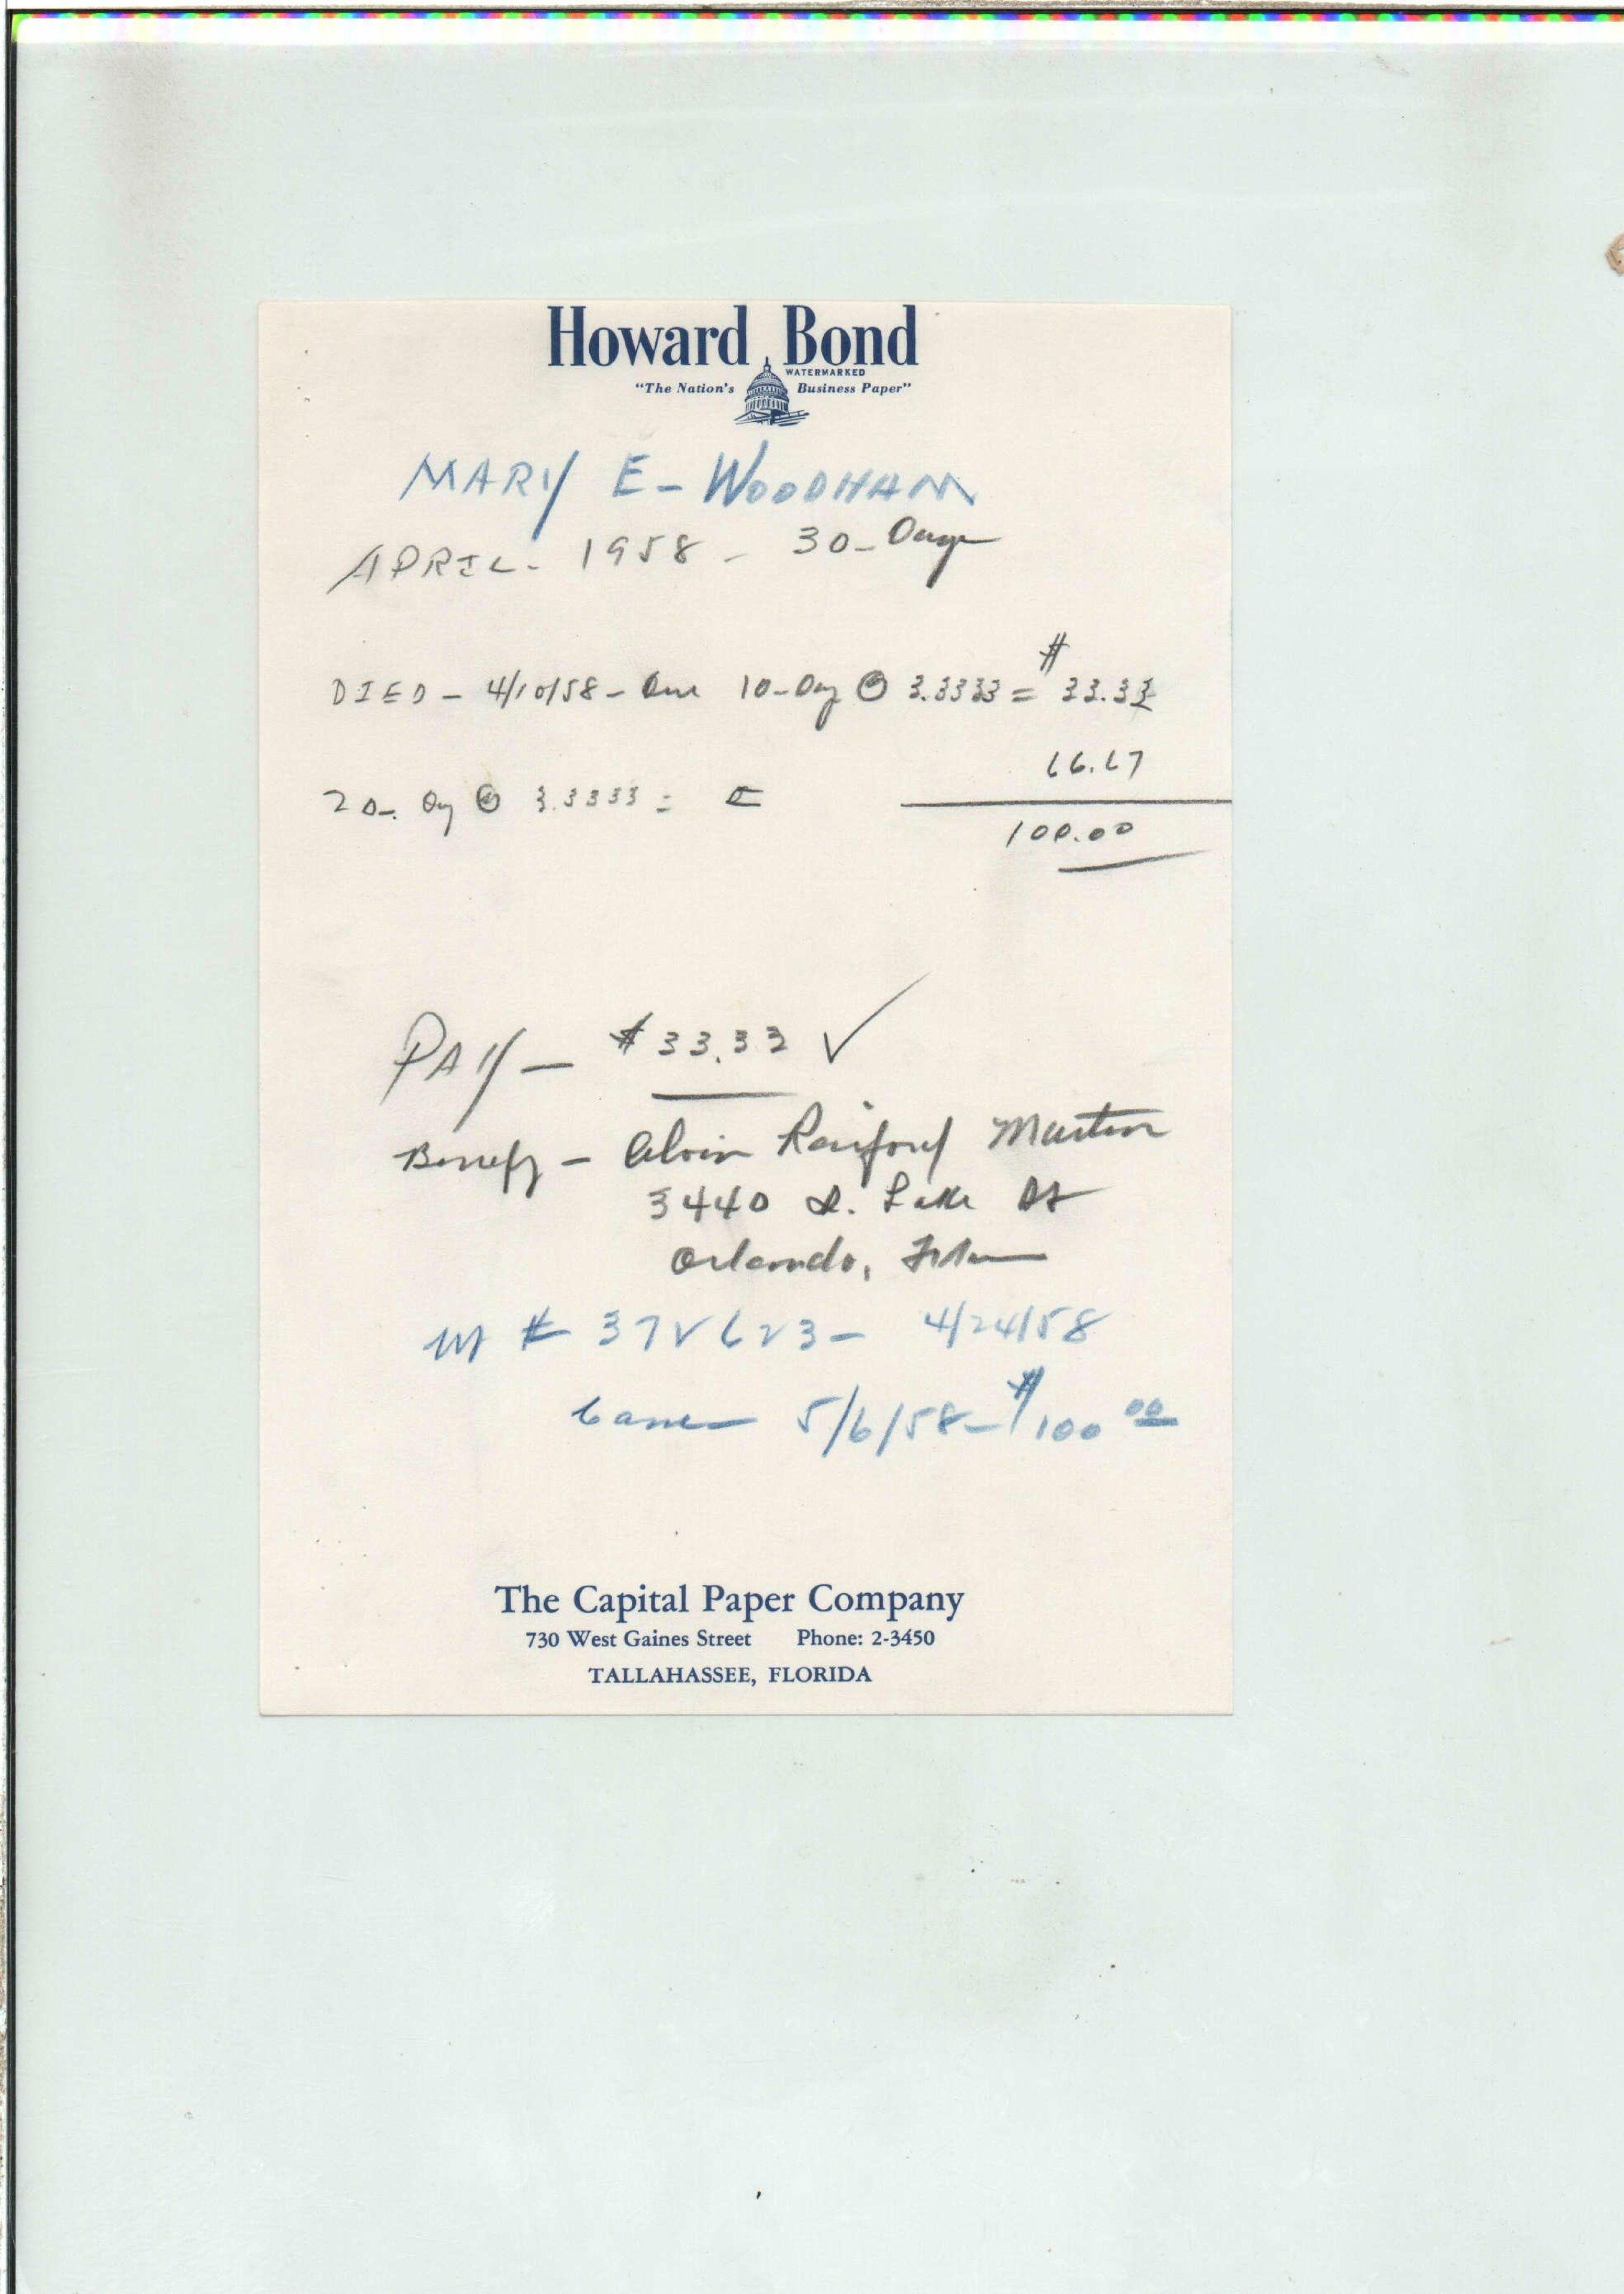 Howard Bond
WATERMARKED
"The Nation's Business Paper"
MARY E - WOODHAM
APRIL - 1958 - 30 - Days
DIED - 4/10/58 - Due 10 - Day @ 3.3333 = $33.33
66.67
20 - Day @ 3.3333 =
100.00
PAY - $33.33 ✓
Benefy - Alvin Raiford Martin
3440 S. Lake St
Orlando, Fla
W # 372623 - 4/24/58
Canc 5/6/58 - $100 00
The Capital Paper Company
730 West Gaines Street Phone: 2-3450
TALLAHASSEE, FLORIDA